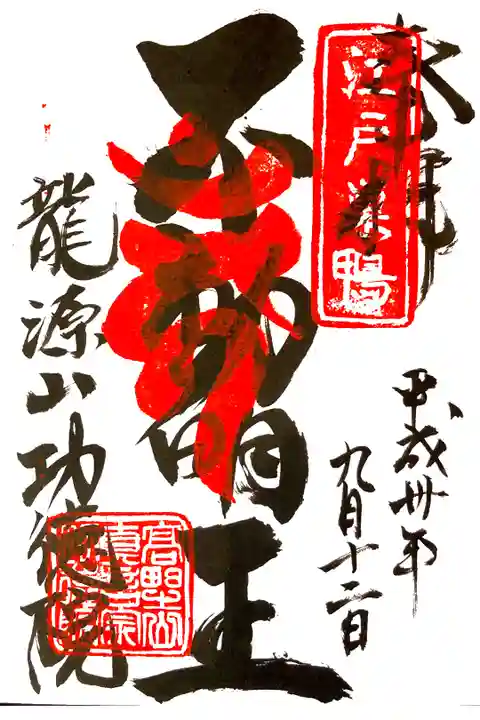 奉拝
江戸巣鴨
平成卅年
九月十二日
不動明王
龍源山功徳院
高野山
真言宗